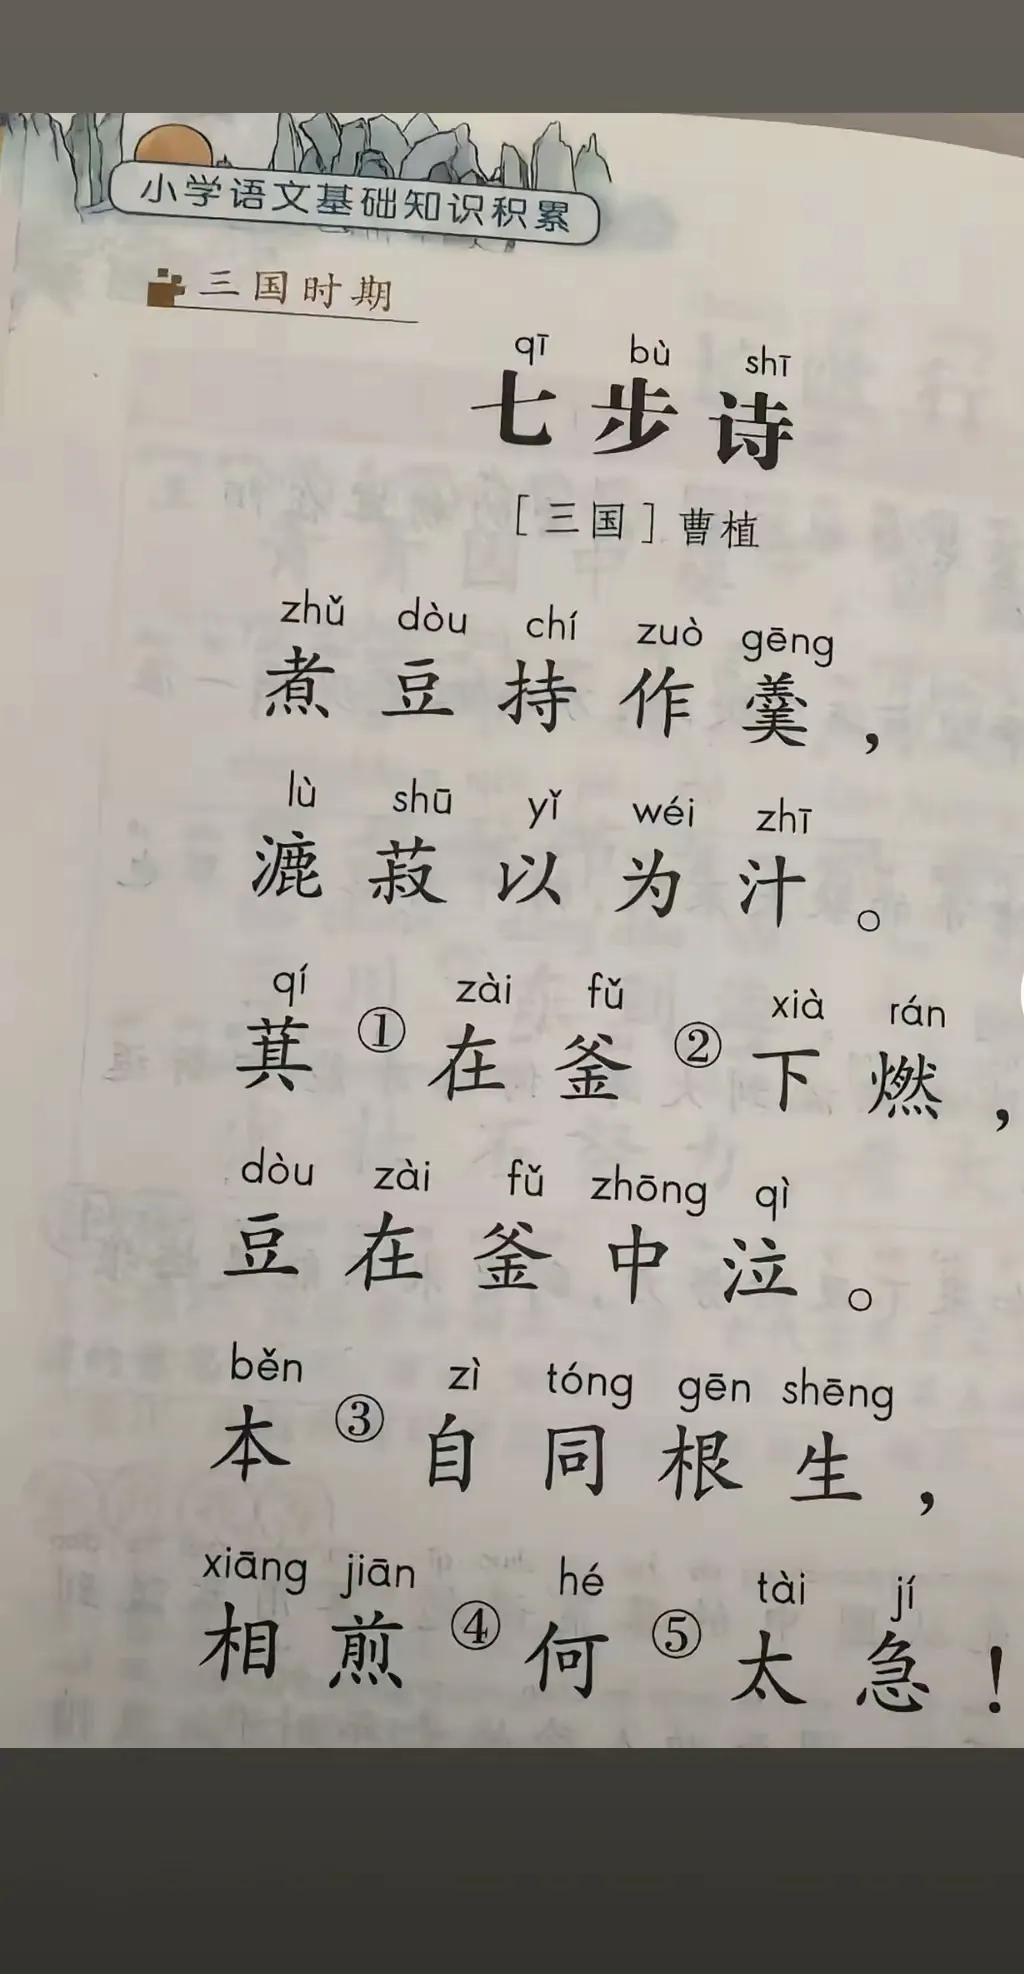 小学语文基础知识积累
三国时期
qī bù shī
七步诗
［三国］曹植
zhǔ dòu chí zuò gēng
煮豆持作羹，
lù shū yǐ wéi zhī
漉菽以为汁。
qí zài fǔ xià rán
萁①在釜②下燃，
dòu zài fǔ zhōng qì
豆在釜中泣。
běn zì tóng gēn shēng
本③自同根生，
xiāng jiān hé tài jí
相煎④何⑤太急！